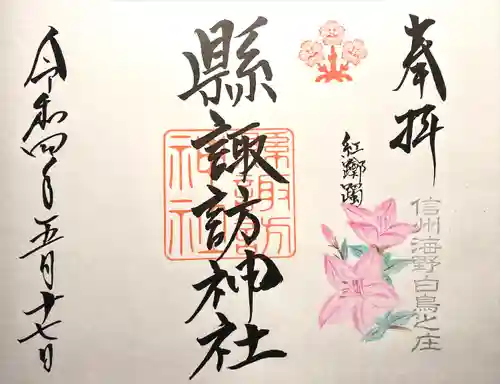 奉拝
信州海野白鳥之庄
紅躑躅
縣諏訪神社
縣諏訪
神社
令和四年五月十七日